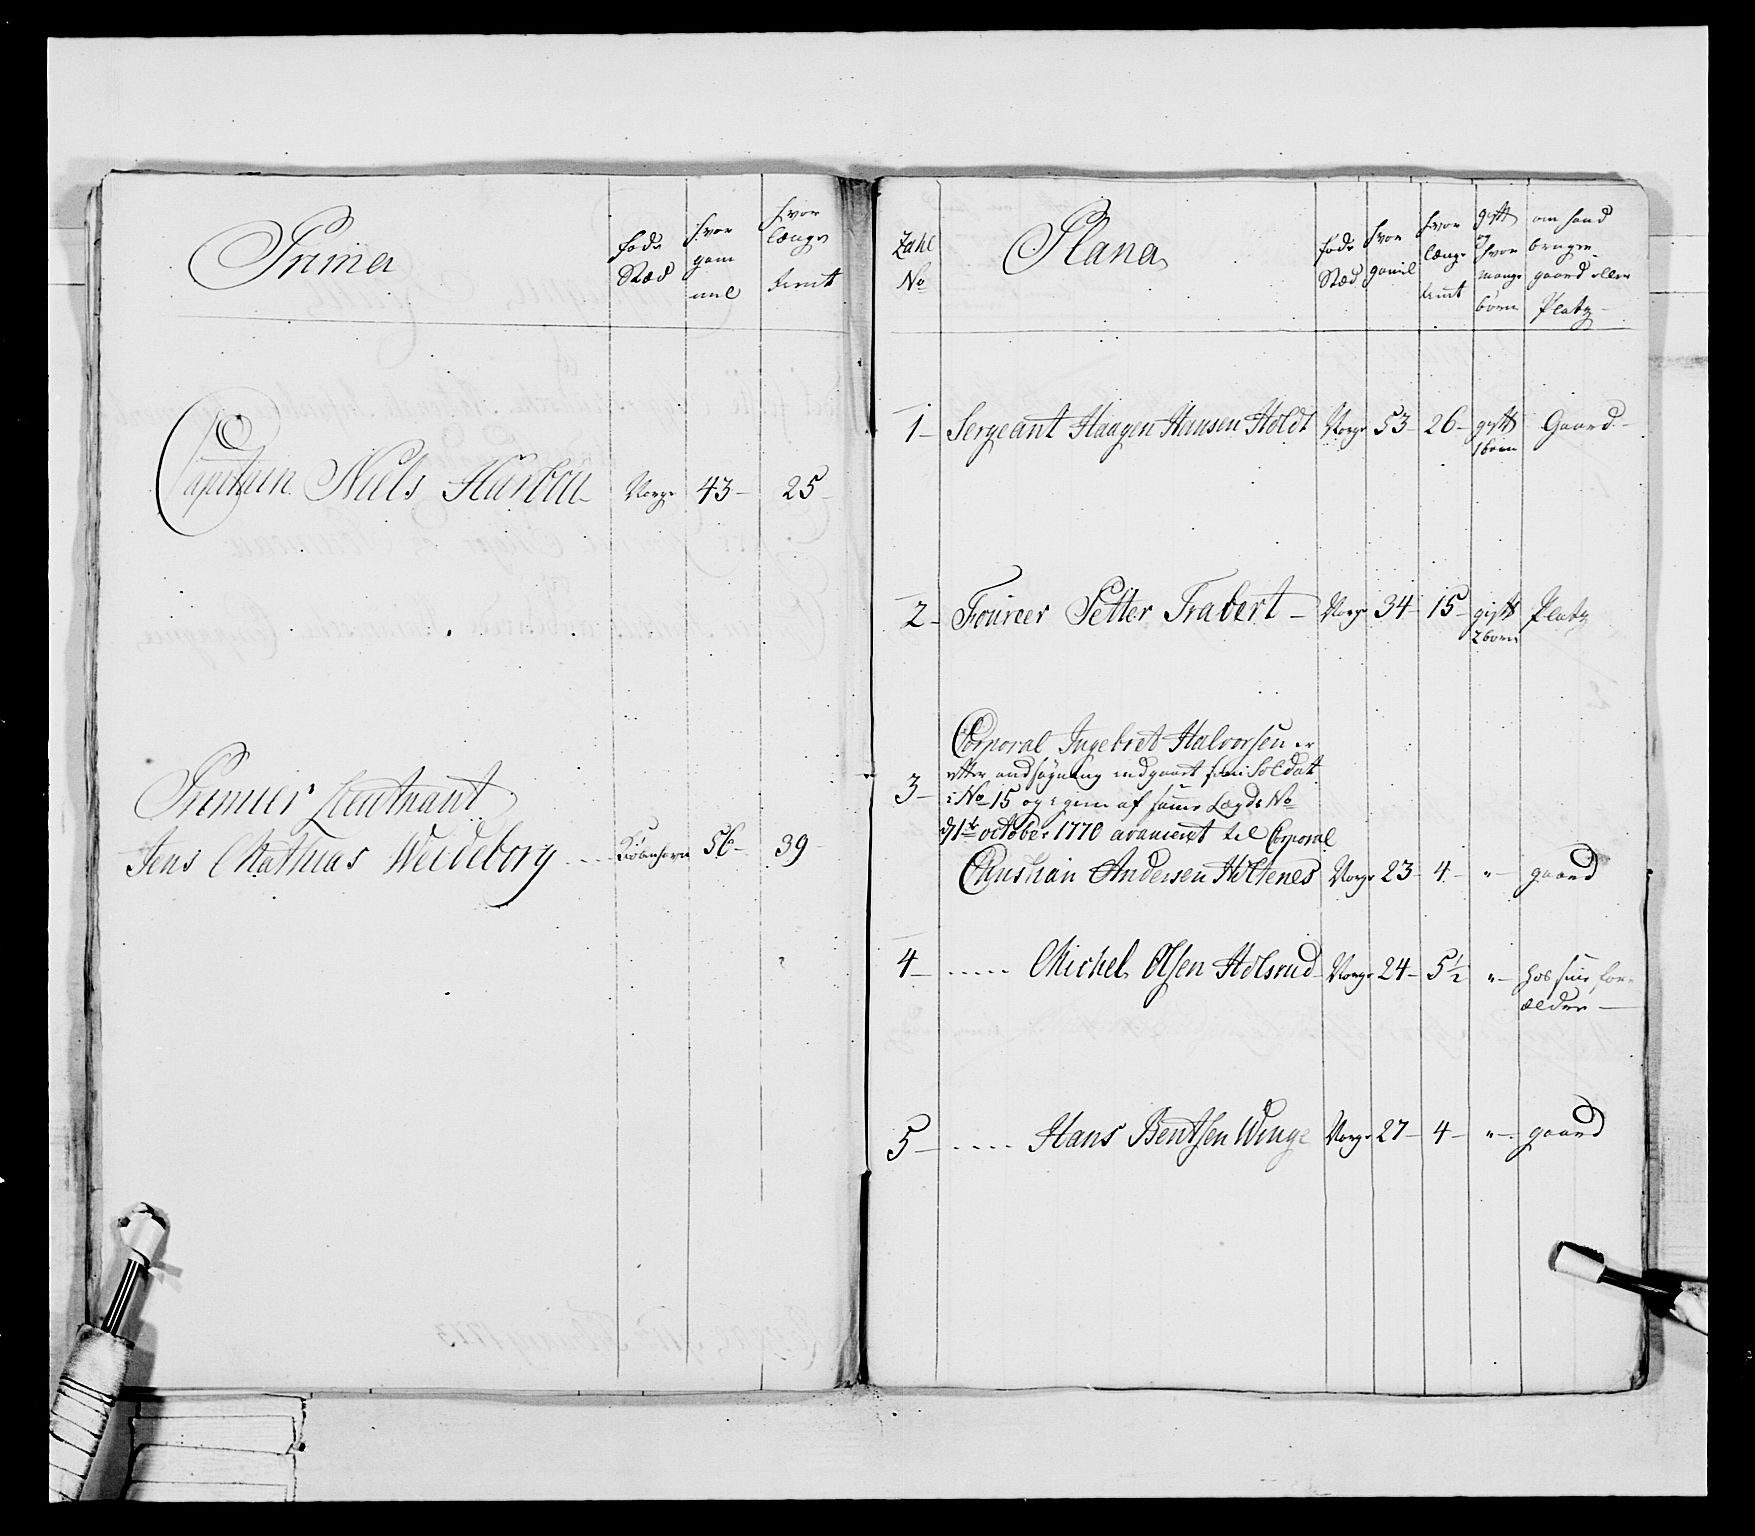 Prima
føde Stæd
hvor gam mel
hvor længe tient
Capitain Niels Harbou Norge 43 25
Premier Lieutnant
Jens Mathias Weideborg Kiøbenhavn 56 39
Zahl No
Plana
føde Stæd
hvor gamel
hvor længe tient
gift og hvor mange børn
om hand bruger gaard eller Platz
1 Sergeant Haagen Hansen Holdt Norge 53 26 gift Gaard
1 børn
2 Fourier Petter Trabert Norge 34 15 gift Platz
2 børn
Corporal Ingebret Halvorsen er
3 efter andsøgning indgaaet som Soldat
i No 15 og igien af samme Lægds No
d 1te october 1770 avanceret til Corporal
Christian Andersen Holtenes Norge 23 4 " gaard
4 Michel Olsen Holsrud Norge 24 5½ " hos sine for-
ældre
5 Hans Bentsen Winge Norge 27 4 " gaard